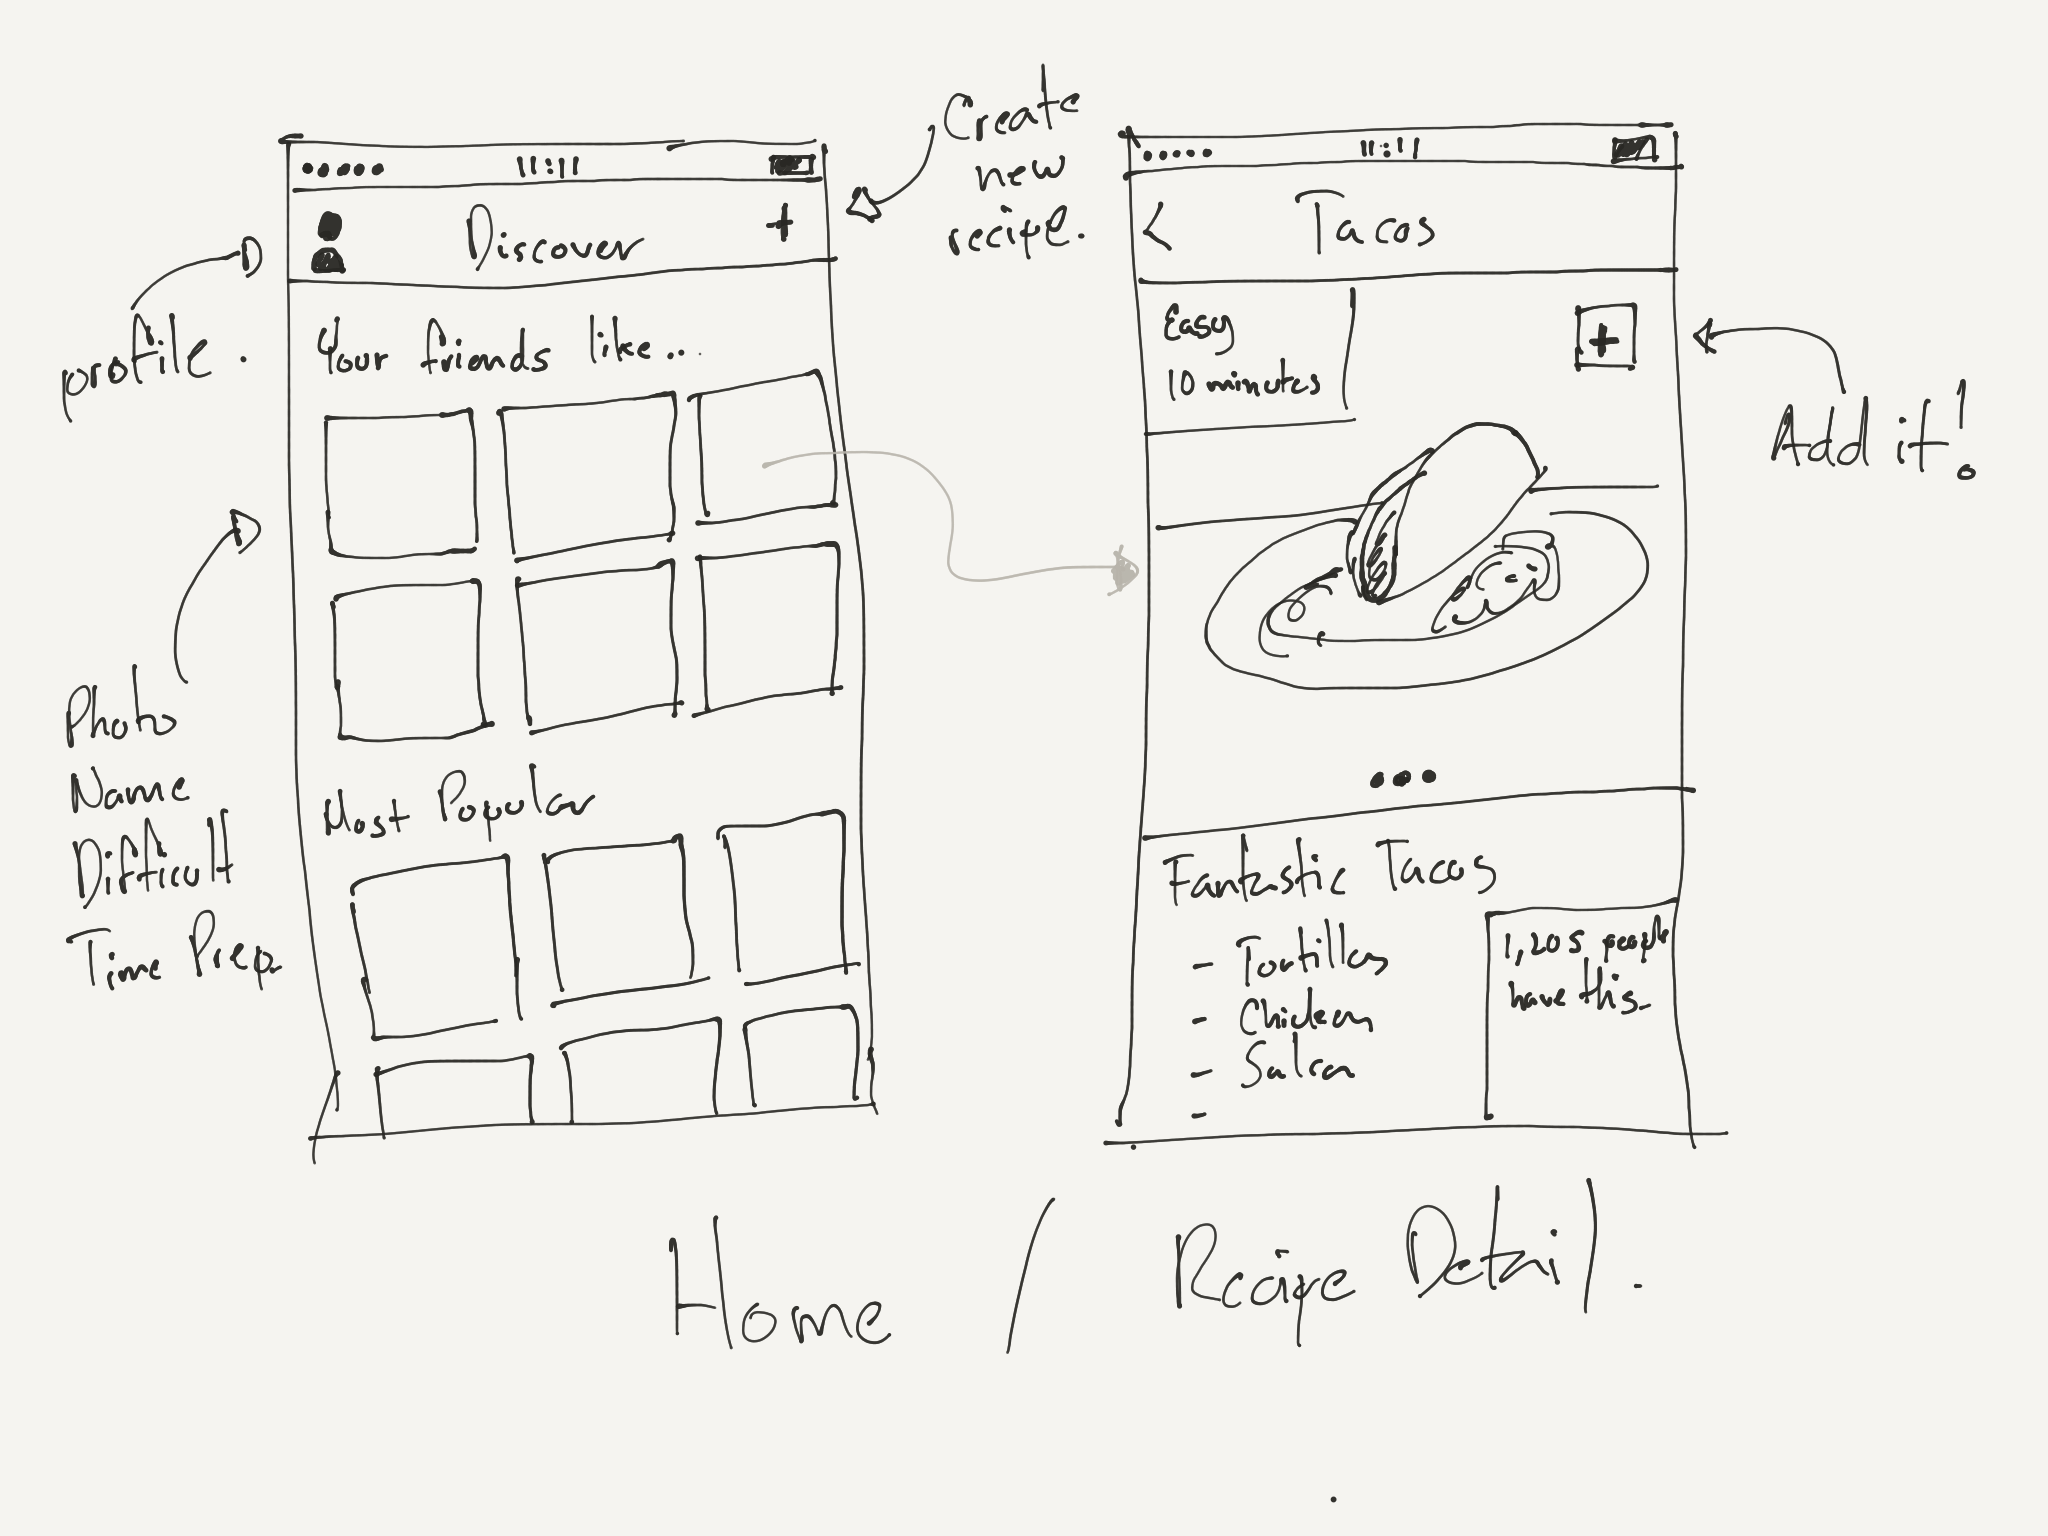 Create
new
recipe.
11:11
Discover +
profile.
Your friends like...
Photo
Name
Difficult
Time Prep.
Most Popular
11:11
< Tacos
Easy
10 minutes
+
Add it!
Fantastic Tacos
- Tortillas
- Chicken
- Salsa
-
1,205 people
have this.
Home / Recipe Detail.